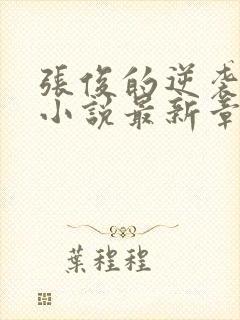 張俊的逆袭
小說最新章
葉程程